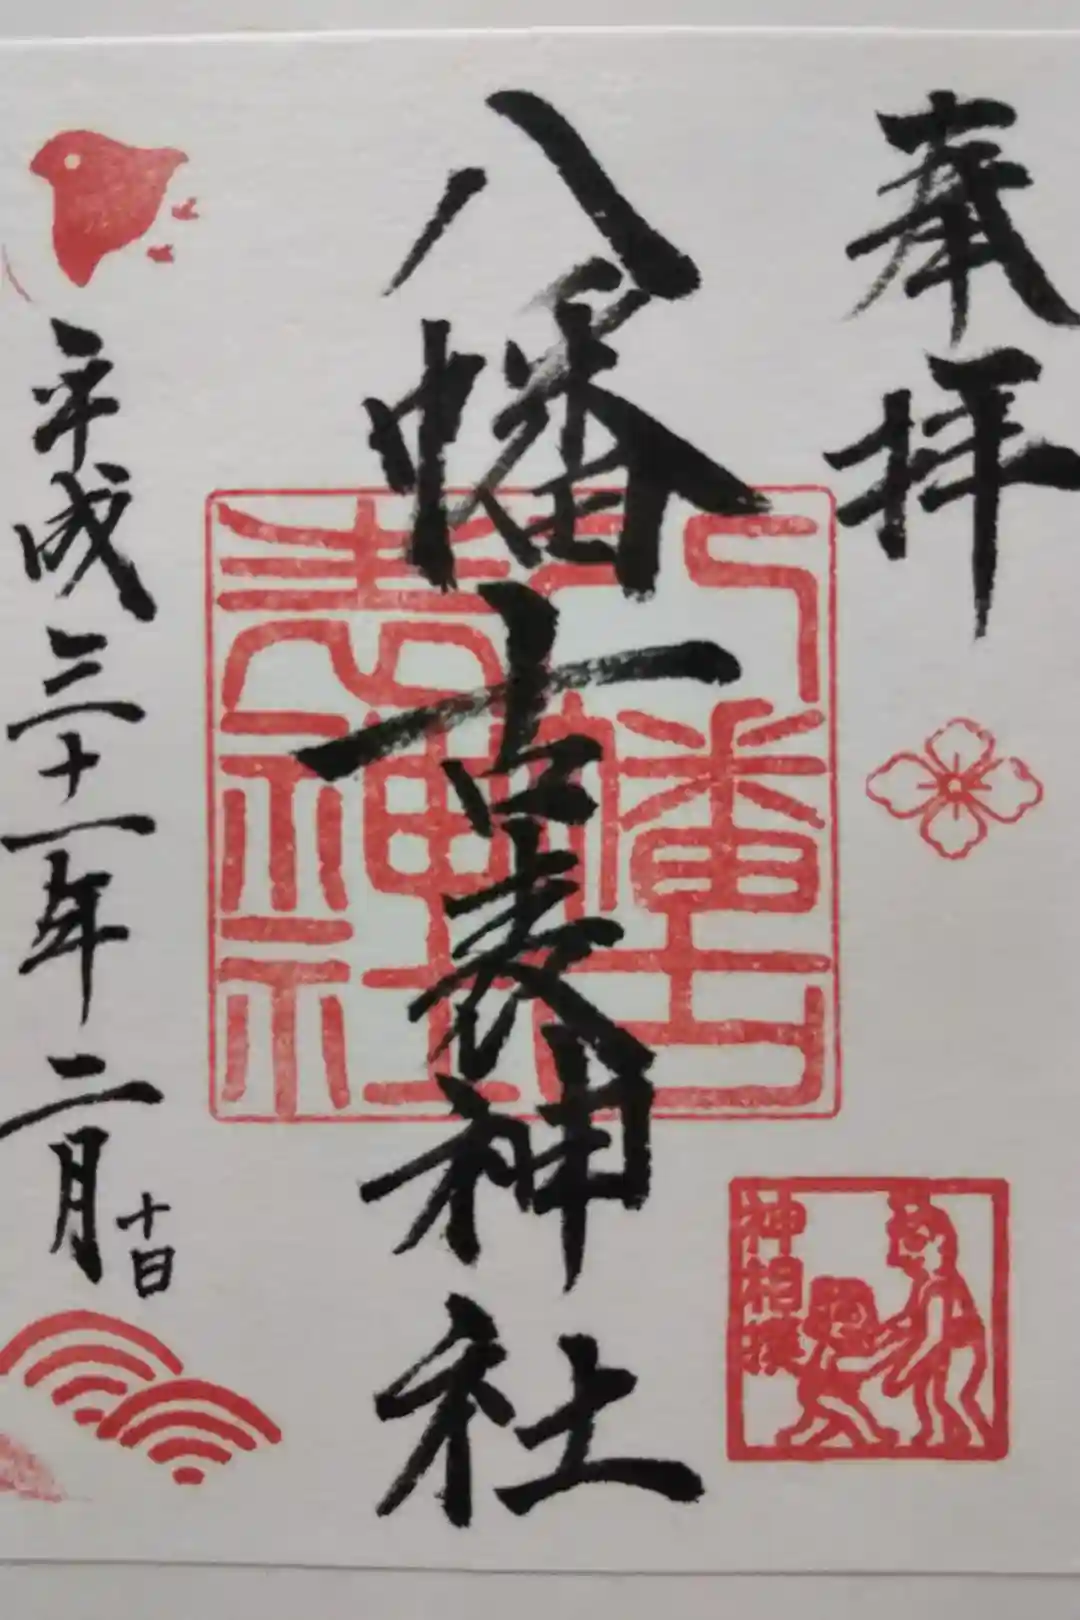 奉拝
八幡古表神社
八幡古表神社
神相撲
平成三十一年二月十日